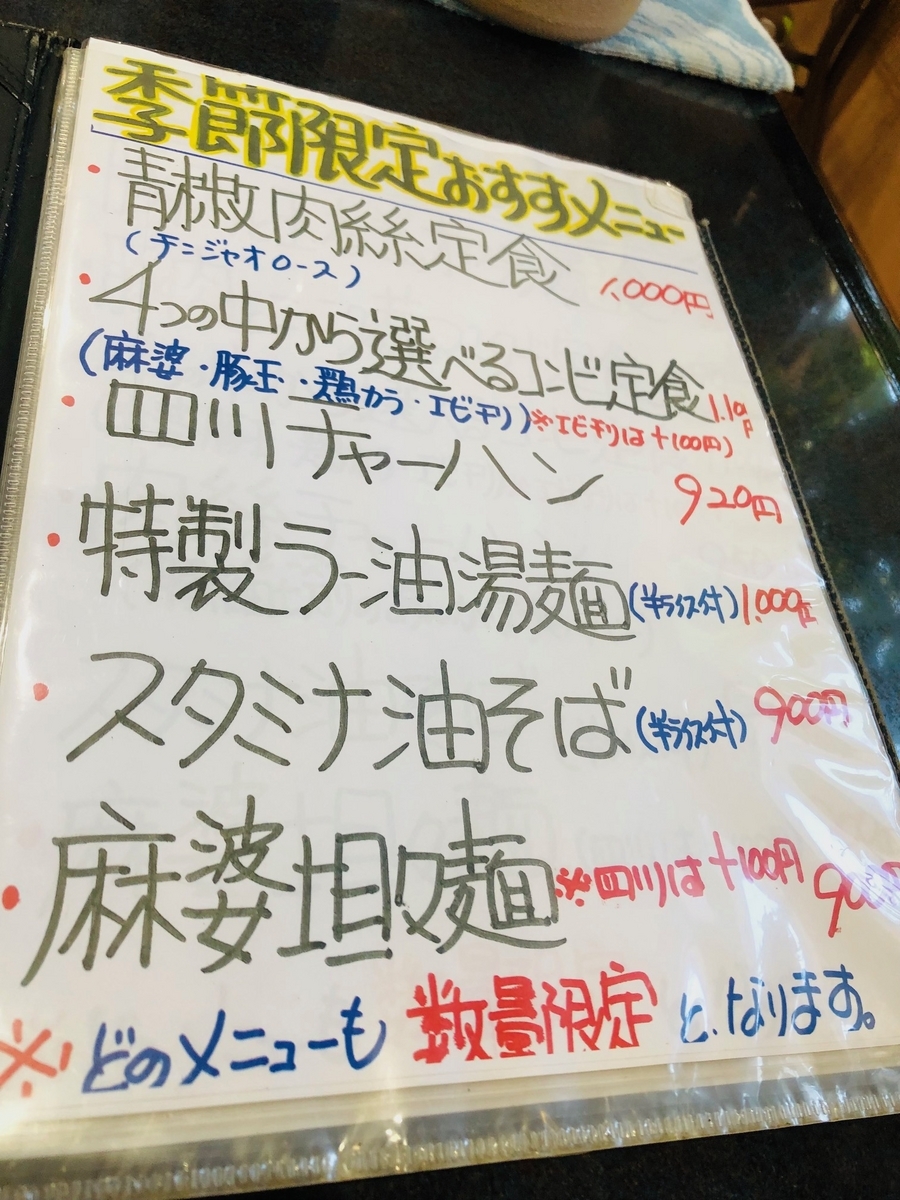 季節限定おすすメニュー
・青椒肉絲定食 1,000円
(チンジャオロース)
・4つの中から選べるコンビ定食
(麻婆・豚玉・鶏カラ・エビチリ)※エビチリは+100円)
・四川チャーハン 920円
・特製ラー油湯麺(半ライス付)1,000円
・スタミナ油そば(半ライス付)900円
・麻婆坦々麺※四川は+100円 900円
※どのメニューも数量限定となります。